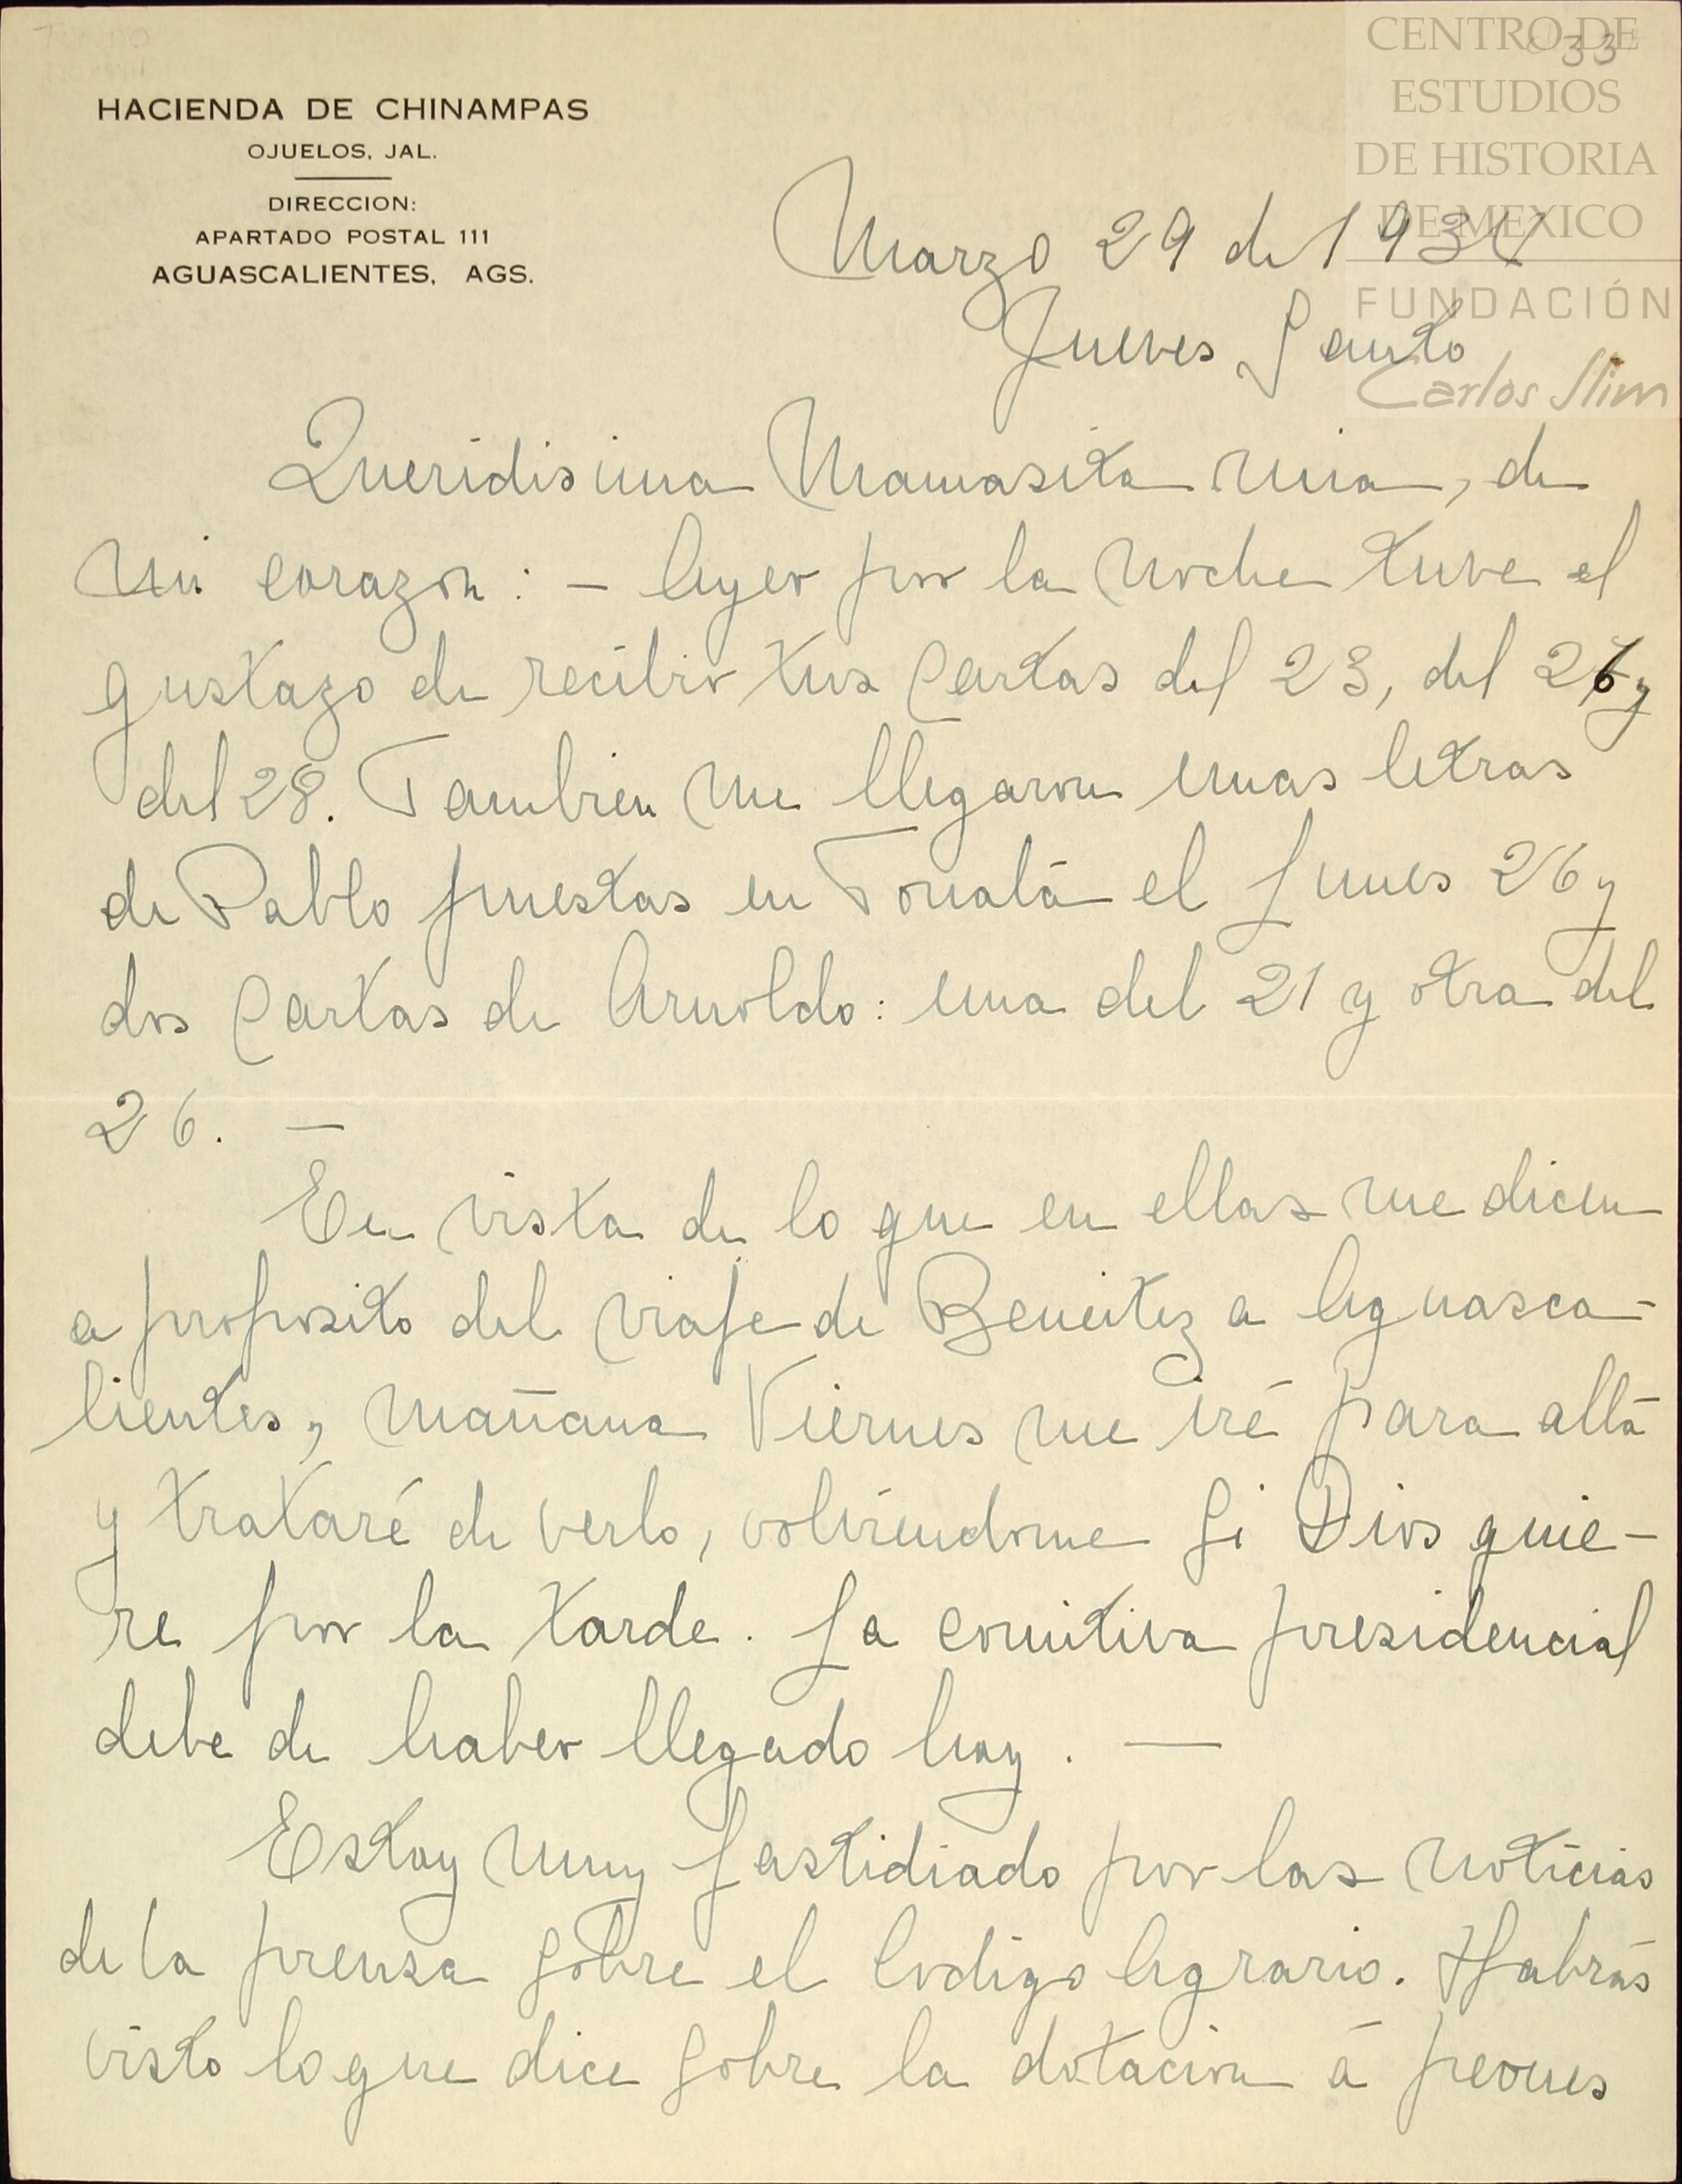 CENTRO DE
ESTUDIOS
DE HISTORIA
DE MEXICO
FUNDACIÓN
Carlos Slim
33
HACIENDA DE CHINAMPAS
OJUELOS, JAL.
DIRECCION:
APARTADO POSTAL 111
AGUASCALIENTES, AGS.
Marzo 29 de 1934
Jueves Santo
Queridisima Mamasita mia, de
mi corazon: - Ayer por la noche tuve el
gustazo de recibir tus cartas del 23, del 26 y
del 28. Tambien me llegaron unas letras
de Pablo puestas en Tonalá el Lunes 26 y
dos cartas de Arnoldo: una del 21 y otra del
26. —
En vista de lo que en ellas me dicen
a proposito del viaje de Beneitez a Aguasca-
lientes, mañana Viernes me iré para allá
y trataré de verlo, volviéndome Si Dios quie-
re por la tarde. La comitiva presidencial
debe de haber llegado hoy. —
Estoy muy fastidiado por las noticias
de la prensa sobre el Codigo Agrario. Habrás
visto lo que dice sobre la dotacion á peones